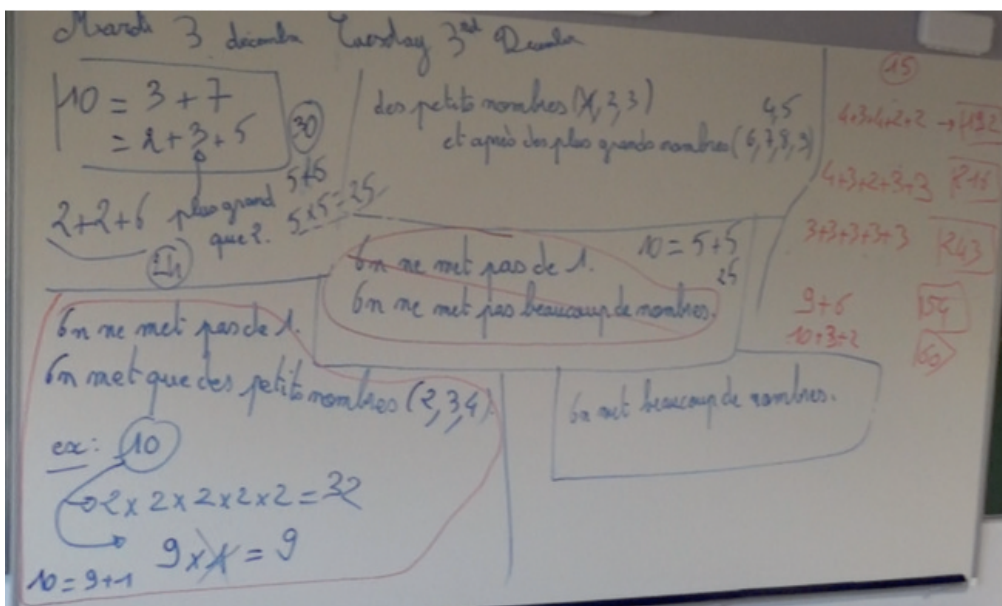 Mardi 3 décembre Tuesday 3rd December
10 = 3 + 7
= 2 + 3 + 5
30
2+2+6 plus grand
que 2.
5+5
5×5=25
24
des petits nombres (1, 2, 3) 4,5
et après des plus grands nombres (6, 7, 8, 9)
On ne met pas de 1. 10 = 5+5
25
On ne met pas beaucoup de nombres.
On ne met pas de 1.
On met que des petits nombres (2, 3, 4).
ex : 10
2 × 2 × 2 × 2 × 2 = 32
9 × 1 = 9
10 = 9+1
On met beaucoup de nombres.
15
4+3+4+2+2 → 192
4+3+2+3+3 216
3+3+3+3+3 243
9+6 54
10+3+2 60